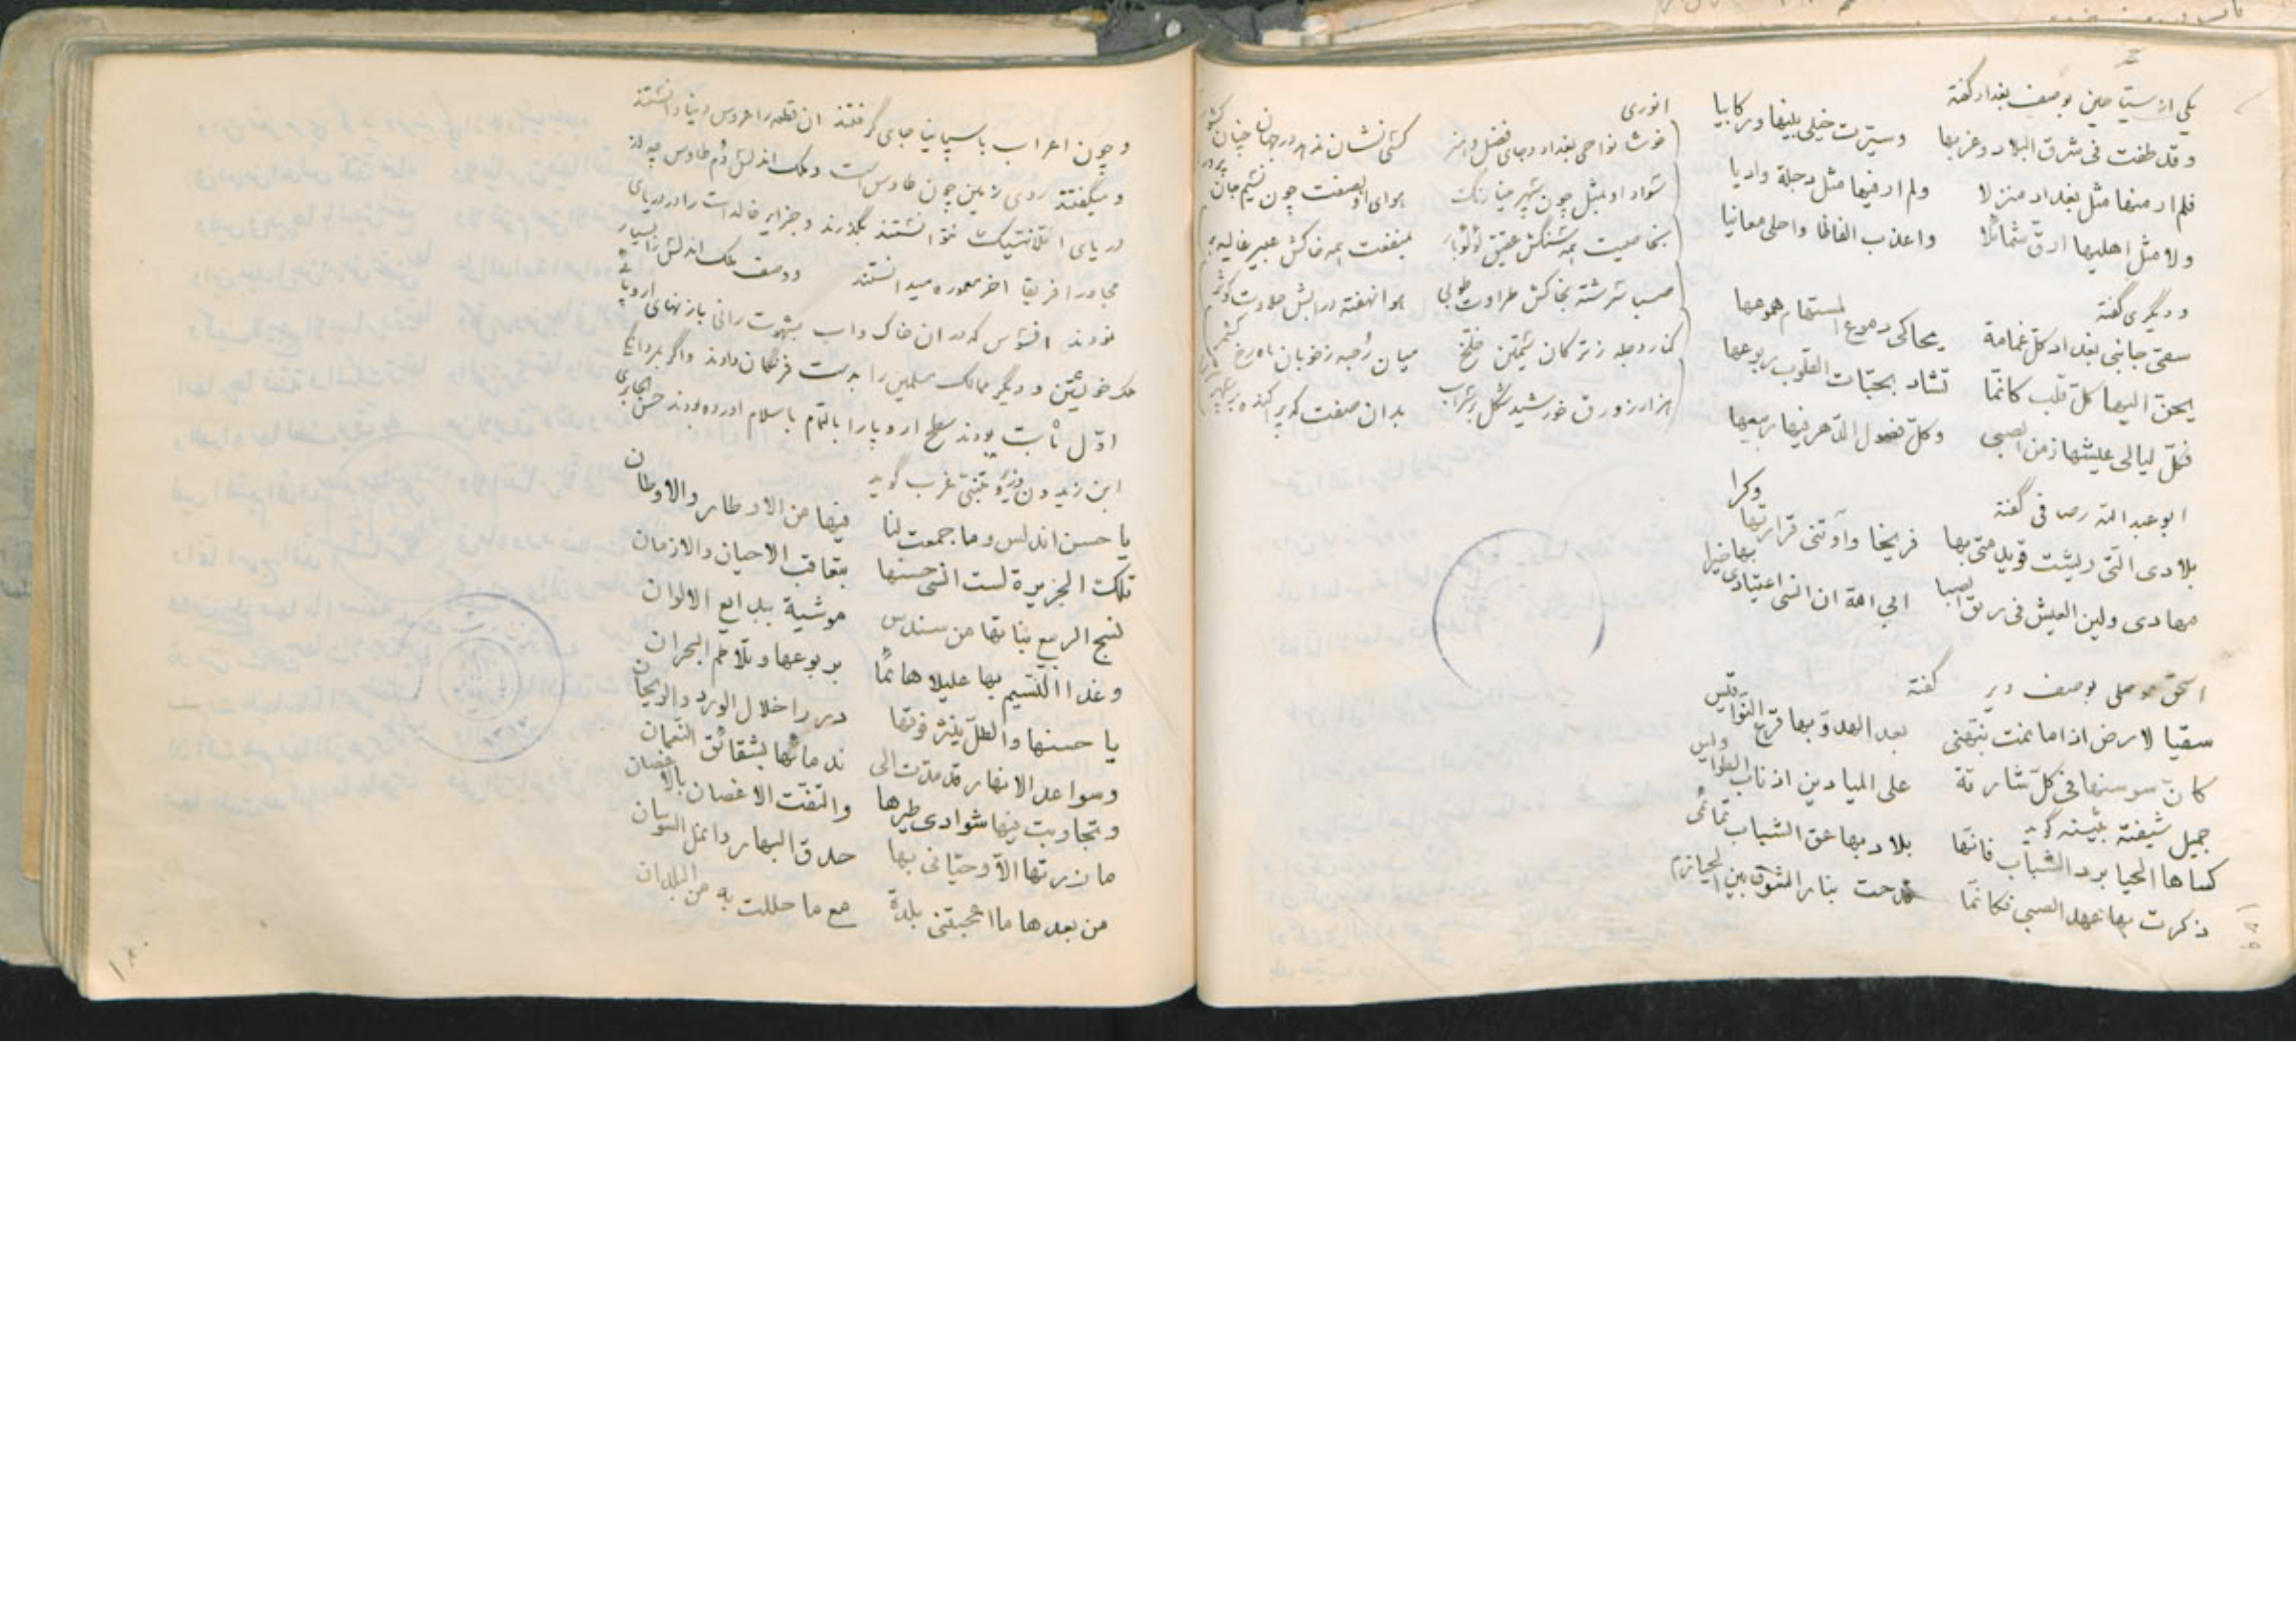 یکی از سیّاحین بوصف بغداد گفته
و قد طفت فی شرق البلاد و غربها وسیّرت خیلی بینها و رکابیا
فلم ار منها مثل بغداد منزلا ولم ار فیها مثل دجلة وادیا
ولا مثل اهلیها ارقّ شمائلا واعذب الفاظا واحلی معانیا
و دیگری گفته
سقی جانبی بغداد کلّ غمامة یحاکی دموع المستهام هموعها
یحنّ الیها کلّ قلب کانّما تشاد بحبّات القلوب ربوعها
فکلّ لیالی عیشها زمن الصبی وکلّ فصول الدّهر فیها ربیعها
ابو عبد الله رصافی گفته
بلادی الّتی ریشت قویدمتی بها فریخا وآوتنی قرارتها وکرا
مهادی ولین العیش فی ریق الصبا ابی الله ان انسی اعتیادی بها خیرا
اسحق موصلی بوصف دیر گفته
سقیا لارض اذا ما نمت نبّهنی بعد الهدوّ بها قرع النّواقیس
کانّ سوسنها فی کلّ شارقة علی المیادین اذناب الطواویس
جمیل شیفته بثینه گوید
کساها الحیا برد الشباب فانّها بلاد بها عق الشباب تمائمی
ذکرت بها عهد الصبی فکانّما قدحت بنار الشوق بین الحیازم
انوری
خوشا نواحی بغداد و جای فضل و هنر کسی نشان ندهد در جهان چنان کشور
سواد او بمثل چون سپهر مینا رنگ هوای او بصفت چون نسیم جان پرور
بخاصیت همه سنگش عقیق لؤلؤبار بمنفعت همه خاکش عبیر غالیه بر
صبا سرشته بخاکش طراوت طوبی هوا نهفته در آبش حلاوت کوثر
کنار دجله ز ترکان سیمتن خلخ میان رحبه ز خوبان ماه رخ کشمر
هزار زورق خورشید شکل بر سر آب بدان صفت که پراکنده بر سپهر
١٧٩
و چون اعراب باسپانیا جای گرفتند ان قطعه را عروس دنیا دانستند
و میگفتند روی زمین چون طاوس است و ملک اندلس دُم طاوس چه از
دریای اتلانتیک نتوانستند بگذرند و جزایر خالدات را در دریای
مجاور افریقا اخر معموره میدانستند و وصف ملک اندلس را بسیار
نمودند افسوس که در ان خاک و اب بشهوت رانی با زنهای اروپا
ملک خویشتن و دیگر ممالک مسلمین را بدست فرنگان دادند و اگر
اوّل ثابت بودند سطح اروپا را بالتمام باسلام اورده بودند
ابن زیدون وزیر و متنبّی غرب گوید
یا حسن اندلس وما جمعت لنا فیها من الاوطار والاوطان
تلک الجزیرة لست انسی حسنها بتعاقب الاحیان والازمان
نسج الربیع نباتها من سندس موشیة ببدایع الالوان
وغدا النّسیم بها علیلا هائمًا بربوعها وتلاطم البحران
یا حسنها والطلّ ینثر فوقها دررا خلال الورد والریحان
وسواعد الانهار قد مدّت الی ندمائها بشقائق النّعمان
وتجاوبت فیها شوادی طیرها والتفّت الاغصان بالاغصان
ما زرتها الّا وحیّانی بها حدق البهار وانمل السّوسان
من بعدها ما اعجبتنی بلدة مع ما حللت به من البلدان
١٨٠